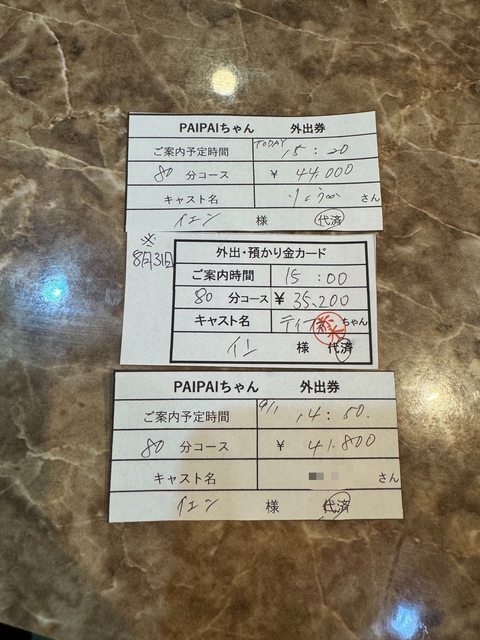 PAIPAIちゃん 外出券
ご案内予定時間 TODAY 15:20
80 分コース ¥ 44,000
キャスト名 さん
イエン 様 代済
※
8月31日
外出・預かり金カード
ご案内時間 15:00
80 分コース ¥ 35,200
キャスト名 ティア ちゃん
イン 様 代済
PAIPAIちゃん 外出券
ご案内予定時間 9/1 14:50.
80 分コース ¥ 41,800
キャスト名 さん
イエン 様 代済